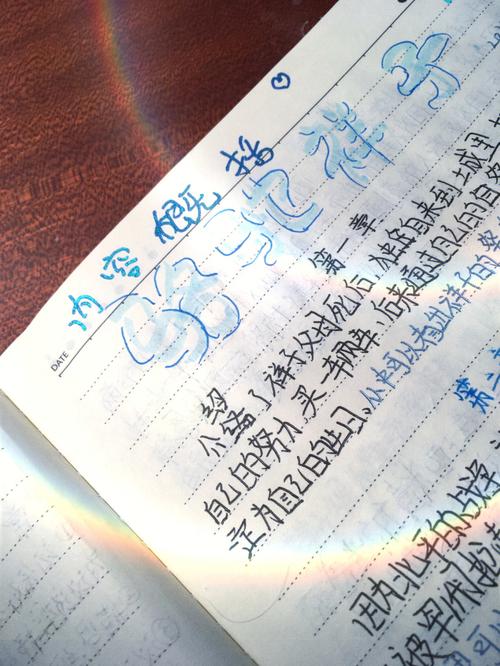 内容概括
骆驼祥子
DATE
第一章
介绍了祥子父母死后,独自来到北城里
自己的努力买一辆车,后来通过自己的自努
定为自己的生日,从中可以看出祥子的努
第二
因为北平的战
被